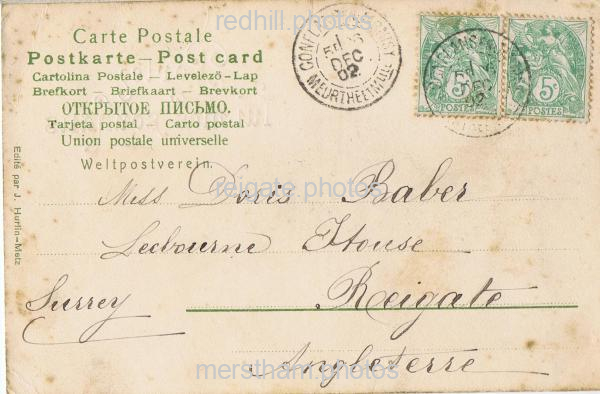 redhill.photos
Carte Postale
Postkarte — Post card
Cartolina Postale — Levelező-Lap
Brefkort — Briefkaart — Brevkort
ОТКРЫТОЕ ПИСЬМО.
Tarjeta postal — Carto postal
Union postale universelle
Weltpostverein.
Edité par J. Hurlin-Metz
MEURTHE ET M
DEC
02
5c
5c
POSTES
POSTES
reigate.photos
Miss Doris Baber
House
Surrey
Reigate
Angleterre
merstham.photos